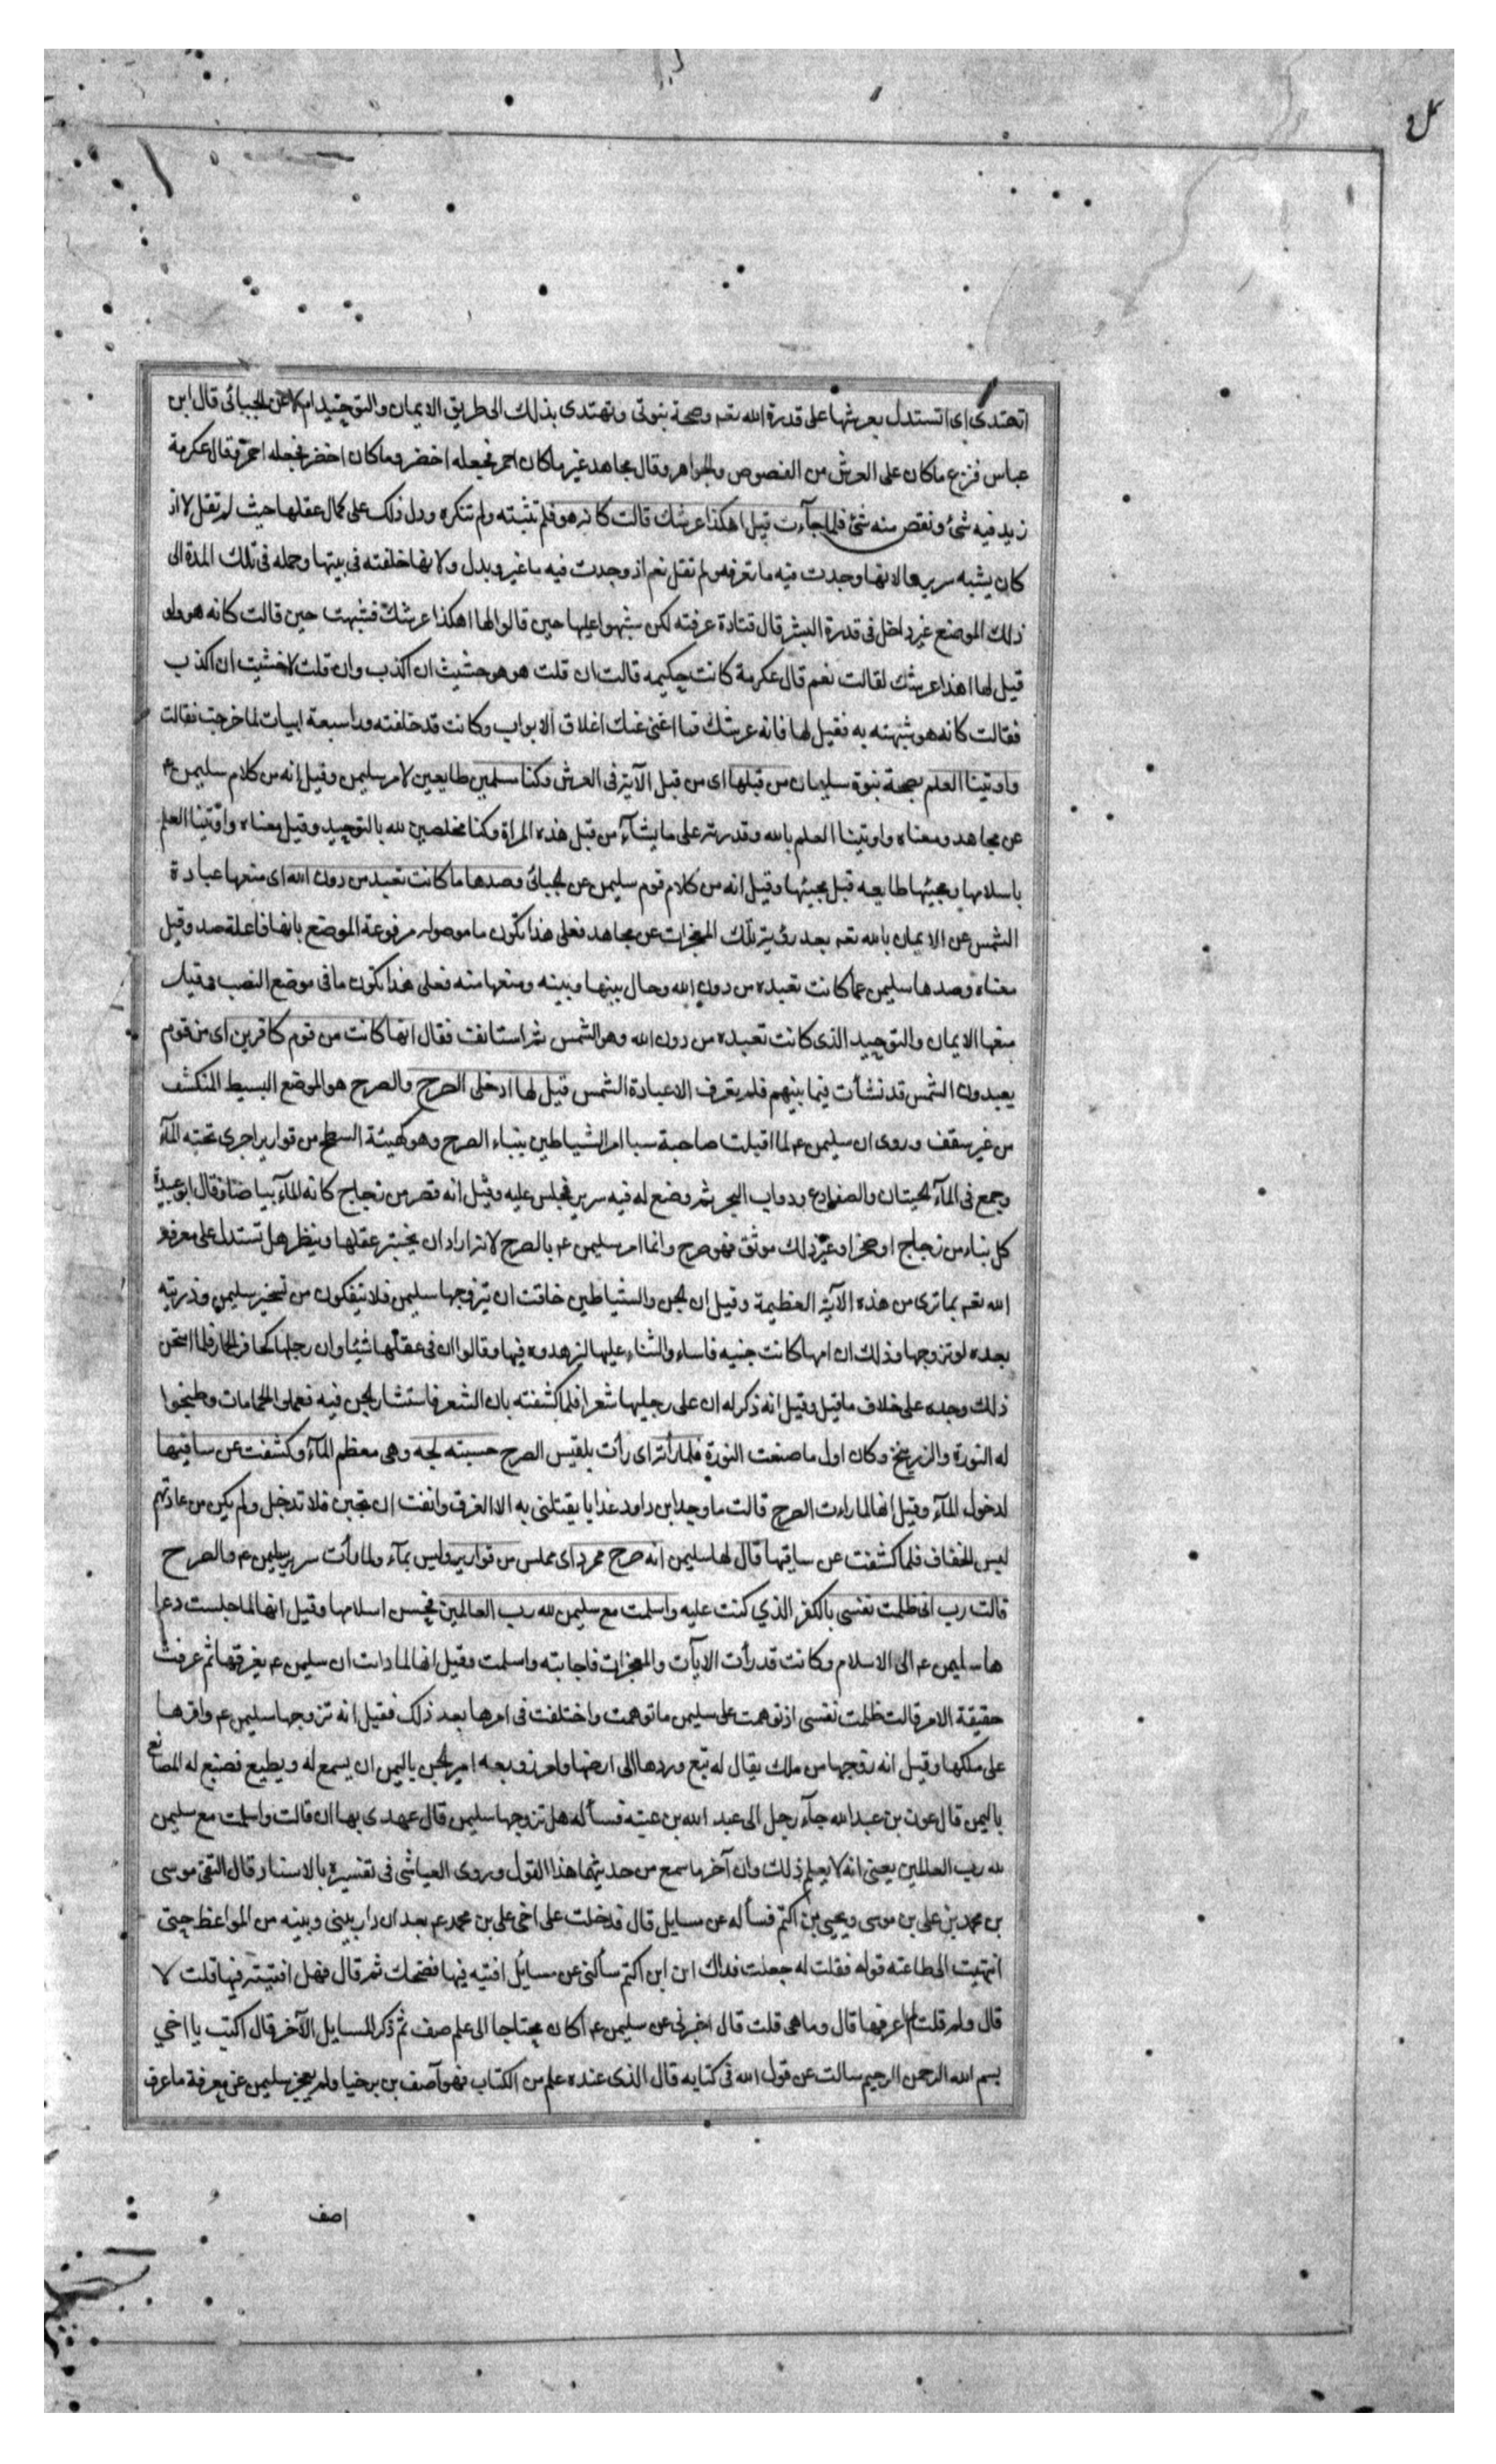 اتهتدى اى اتستدل بعرشها على قدرة الله تعـ وصحة نبوتى وتهتدى بذلك الى طريق الايمان والتوحيد ام لا عن الجبائى قال ابن
عباس فنزع ما كان على العرش من الفصوص والجواهر وقال مجاهد غير ما كان احمر فجعله اخضر وما كان اخضر فجعله احمر وقال عكرمة
زيد فيه شئ ونقص منه شئ فلما جآءت قيل اهكذا عرشك قالت كانه هو فلم تثبته ولم تنكره ودل ذلك على كمال عقلها حيث لم تقل لا اذ
كان يشبه سريرها لانها وجدت فيه ما تعرفه ولم تقل نعم اذ وجدت فيه ما غير وبدل ولانها خلفته فى بيتها وحمله فى تلك المدة الى
ذلك الموضع غير داخل فى قدرة البشر قال قتادة عرفته لكن شبهوا عليها حين قالوا لها اهكذا عرشك فشبهت حين قالت كانه هو ولو
قيل لها اهذا عرشك لقالت نعم قال عكرمة كانت حكيمه قالت ان قلت هو هو خشيت ان اكذب وان قلت لا خشيت ان اكذب
فقالت كانه هو شبهته به فقيل لها فانه عرشك فما اغنى عنك اغلاق الابواب وكانت قد خلفته ورا سبعة ابيات لما خرجت فقالت
واوتينا العلم بصحة نبوة سليمان من قبلها اى من قبل الآية فى العرش وكنا مسلمين طايعين لامر سليمن وقيل انه من كلام سليمن عـ
عن مجاهد ومعناه واوتينا العلم بالله وقدرته على ما يشآء من قبل هذه المراة وكنا مخلصين لله بالتوحيد وقيل معناه واوتينا العلم
باسلامها ومجيئها طايعه قبل مجيئها وقيل انه من كلام قوم سليمن عن الجبائى وصدها ما كانت تعبد من دون الله اى منعها عبادة
الشمس عن الايمان بالله تعـ بعد رؤية تلك المعجزات عن مجاهد فعلى هذا تكون ما موصوله مرفوعة الموضع بانها فاعلة صد وقيل
معناه وصدها سليمن عما كانت تعبده من دون الله وحال بينها وبينه ومنعها منه فعلى هذا تكون ما فى موضع النصب وقيل
منعها الايمان والتوحيد الذى كانت تعبده من دون الله وهو الشمس ثم استانفت فقال انها كانت من قوم كافرين اى من قوم
يعبدون الشمس قد نشأت فيما بينهم فلم يعرف الا عبادة الشمس قيل لها ادخلى الصرح والصرح هو الموضع البسيط المنكشف
من غير سقف وروى ان سليمن عـ لما اقبلت صاحبة سبا امر الشياطين ببناء الصرح وهو كهيئة السطح من قوارير اجرى تحته المآء
وجمع فى المآء الحيتان والضفادع ودواب البحر ثم وضع له فيه سرير فجلس عليه وقيل انه قصر من زجاج كانه المآء بياضا وقال ابو عبيدة
كل بناء من زجاج او صخر او غير ذلك موثق فهو صرح وانما امر سليمن عـ بالصرح لانه اراد ان يختبر عقلها وينظر هل تستدل على معرفة
الله تعـ بما ترى من هذه الآية العظيمة وقيل ان الجن والشياطين خافت ان يتزوجها سليمن فلا ينفكون من تسخير سليمن وذريته
بعده لو تزوجها وذلك ان امها كانت جنيه فاساءوا الثناء عليها ليزهدوه فيها وقالوا ان فى عقلها شيئا وان رجلها كحافر الحمار فلما امتحن
ذلك وجده على خلاف ما قيل وقيل انه ذكر له ان على رجليها شعرا فلما كشفته بان الشعر فاستشار الجن فيه فعملوا الحمامات وطبخوا
له النورة والزرنيخ وكان اول ما صنعت النورة فلما رأته اى رأت بلقيس الصرح حسبته لجه وهى معظم المآء وكشفت عن ساقيها
لدخول المآء وقيل انها لما راءت الصرح قالت ما وجد ابن داود عذابا يقتلنى به الا الغرق وانفت ان تجبن فلا تدخل ولم يكن من عادتهم
لبس الخفاف فلما كشفت عن ساقيها قال لها سليمن انه صرح ممرد اى مملس من قوارير وليس بمآء ولما رأت سرير سليمن عـ والصرح
قالت رب انى ظلمت نفسى بالكفر الذي كنت عليه واسلمت مع سليمن لله رب العالمين فحسن اسلامها وقيل انها لما جلست دعا
ها سليمن عـ الى الاسلام وكانت قد رأت الايآت والمعجزات فاجابته واسلمت وقيل انها لما دات ان سليمن عـ يغرقها ثم عرفت
حقيقة الامر قالت ظلمت نفسى اذ توهمت على سليمن ما توهمت واختلفت فى امرها بعد ذلك فقيل انه تزوجها سليمن عـ واقرها
على ملكها وقيل انه زوجها من ملك يقال له تبع وردها الى ارضها وامر زوبعه امير الجن باليمن ان يسمع له ويطيع فصنع له المصانع
باليمن قال عون بن عبد الله جآء رجل الى عبد الله بن عتبة فسأله هل تزوجها سليمن قال عهدى بها ان قالت واسلمت مع سليمن
لله رب العالمين يعنى انه لا يعلم ذلك وان آخر ما سمع من حديثهما هذا القول وروى العياشى فى تفسيره بالاسناد قال التقى موسى
بن محمد بن على بن موسى ويحيى بن اكثم فسأله عن مسايل قال فدخلت على اخى على بن محمد عـ بعد ان دار بينى وبينه من المواعظ حتى
انتهيت الى طاعته قوله فقلت له جعلت فداك ان ابن اكثم سألنى عن مسايل افتيه فيها فضحك ثم قال فهل افتيته فيها قلت لا
قال ولم قلت لم اعرفها قال وما هى قلت قال اخبرنى عن سليمن عـ اكان محتاجا الى علم صف ثم ذكر المسايل الآخر قال اكتب يا اخي
بسم الله الرحمن الرحيم سالت عن قول الله فى كتابه قال الذى عنده علم من الكتاب فهو آصف بن برخيا ولم يعجز سليمن عن معرفة ما عرف
اصف